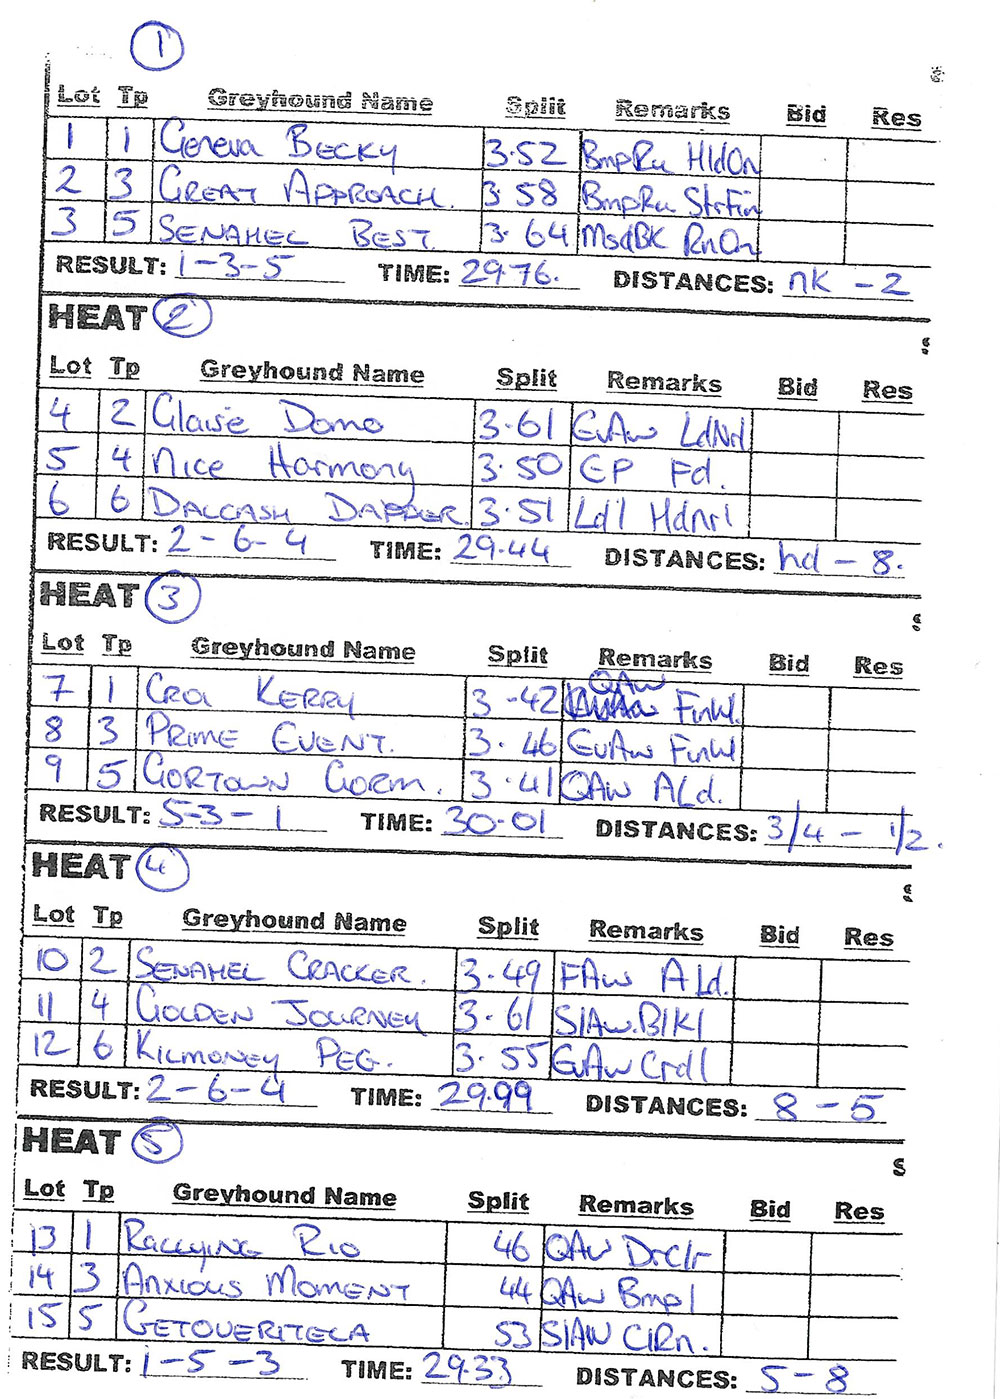 1
Lot Tp Greyhound Name Split Remarks Bid Res
1 1 Geneva Becky 3.52 BmpRu HldOn
2 3 Great Approach. 3.58 BmpRu StrFin
3 5 Senahel Best. 3.64 MsdBk RnOn
RESULT: 1-3-5 TIME: 29.76. DISTANCES: nk - 2
HEAT 2
Lot Tp Greyhound Name Split Remarks Bid Res
4 2 Glaise Domo 3.61 EvAw LdNrl
5 4 Nice Harmony 3.50 EP Fd.
6 6 Dalcash Dapper 3.51 Ld1 Hdnrl
RESULT: 2-6-4 TIME: 29.44 DISTANCES: hd - 8.
HEAT 3
Lot Tp Greyhound Name Split Remarks Bid Res
7 1 Croi Kerry 3-42 QAw FinWl.
8 3 Prime Event. 3.46 EvAw FinWl
9 5 Gortown Gorm. 3.41 QAw ALd.
RESULT: 5-3-1 TIME: 30.01 DISTANCES: 3/4 - 1/2.
HEAT 4
Lot Tp Greyhound Name Split Remarks Bid Res
10 2 Senahel Cracker. 3.49 FAw ALd.
11 4 Golden Journey 3.61 SlAw.Blk1
12 6 Kilmoney Peg. 3.55 EvAw Crd1
RESULT: 2-6-4 TIME: 29.99 DISTANCES: 8 - 5
HEAT 5
Lot Tp Greyhound Name Split Remarks Bid Res
13 1 Rallying Rio 46 QAw DrClr
14 3 Anxious Moment 44 QAw Bmp1
15 5 Getoveritela 53 SlAw ClRn.
RESULT: 1-5-3 TIME: 29.33 DISTANCES: 5-8